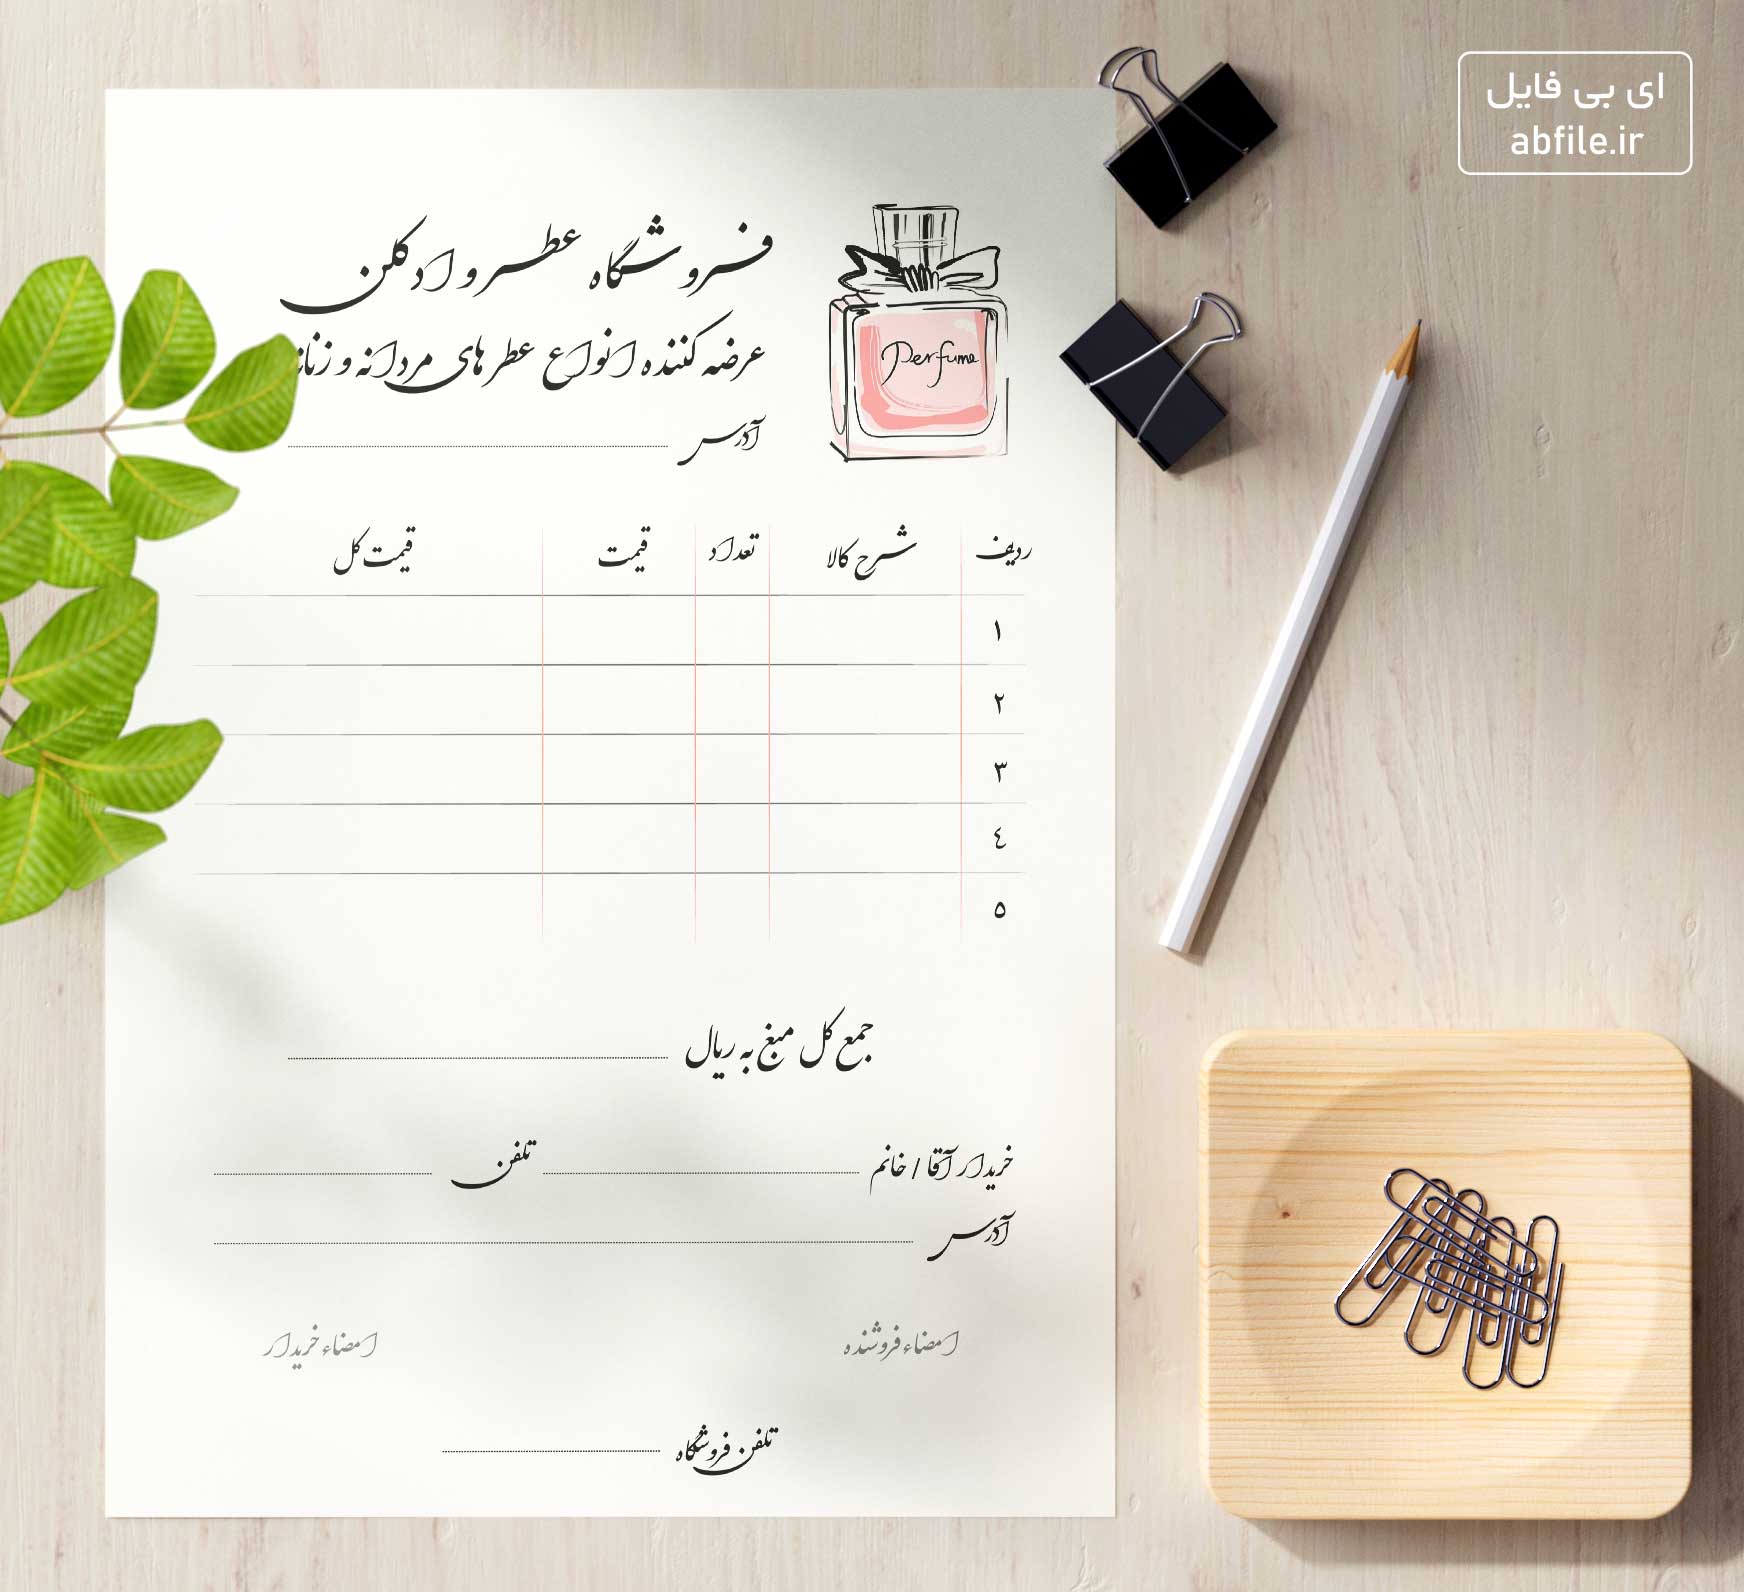 ای بی فایل
abfile.ir
فروشگاه عطر و ادکلن
عرضه کننده انواع عطر های مردانه و زنانه
Perfume
آدرس
ردیف شرح کالا تعداد قیمت قیمت کل
۱
۲
۳
٤
۵
جمع کل مبلغ به ریال
خریدار آقا / خانم تلفن
آدرس
امضاء فروشنده امضاء خریدار
تلفن فروشگاه